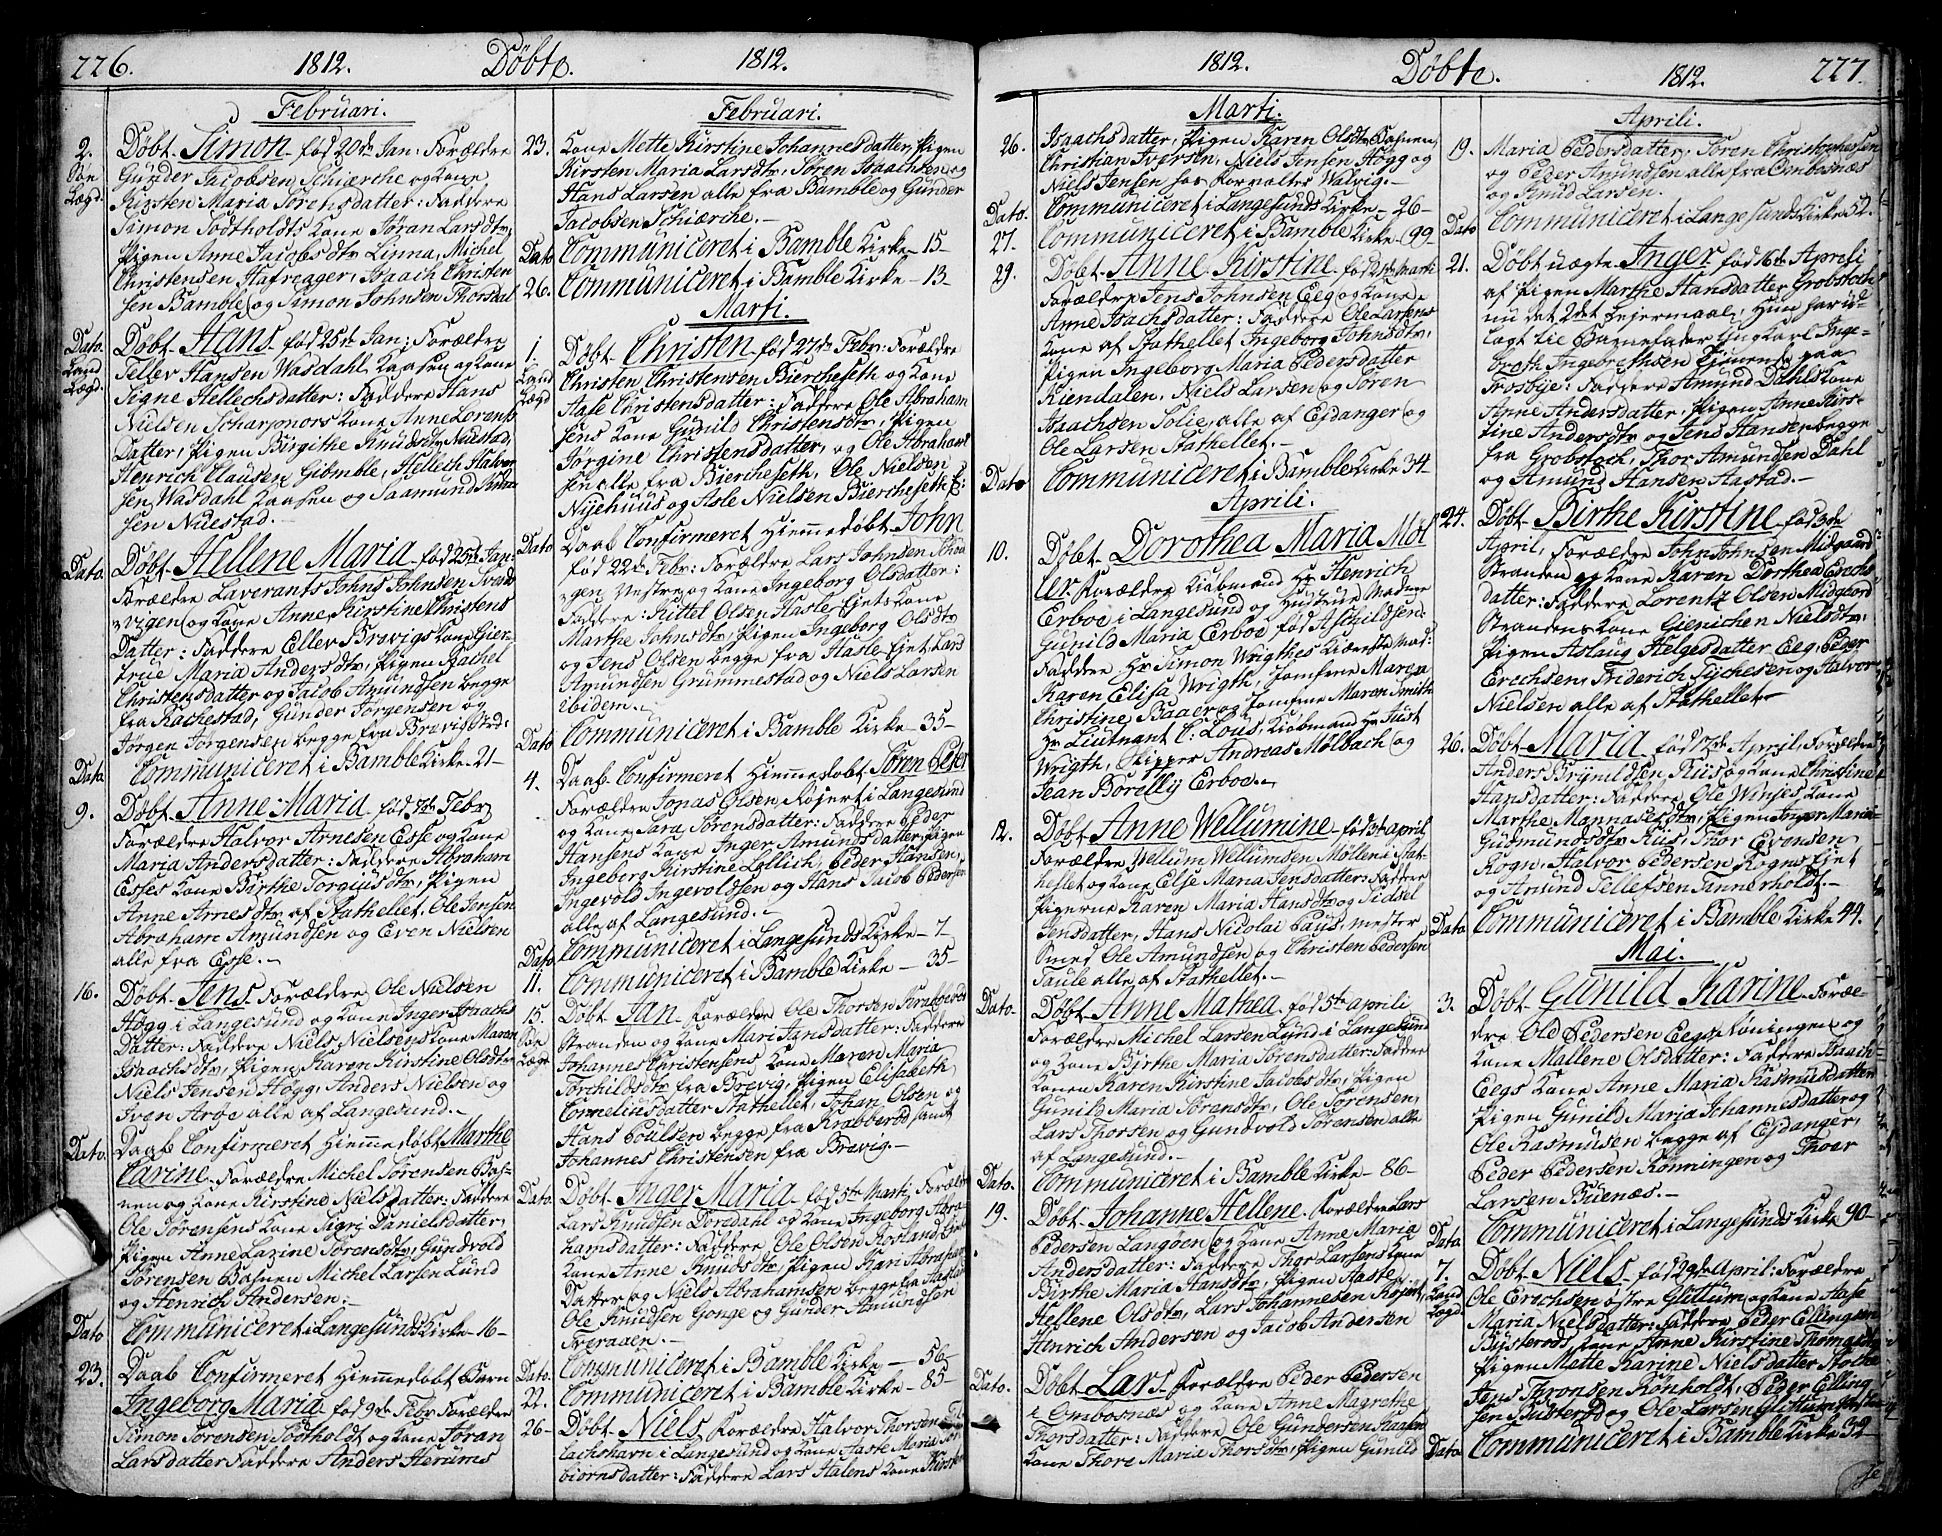 226. 1812. Døbte. 1812.
Februari.
2. Døbt Simon fød 20de Jan: Forældre
Søe Gunder Jacobsen Schierche og Kone
Lægd. Kirsten Maria Sørensdatter: Faddere
Simon Sodtholdts Kone Søran Larsdtr,
Pigen Anne Jacobsdtr Linna, Michel
Christensen Hafreager, Isaach Christen
sen Bamble og Simon Johnsen Thorsdal
Dato. Døbt Hans fød 25de Jan: Forældre
Land Tellev Hansen Wasdahl Kaasen og Kone
Lægd. Signe Hellechsdatter: Faddere Hans
Nielsen Scharponors Kone Anne Lorents
Datter, Pigen Birgithe Knudsdtr Nuestad,
Henrich Clausen Gibmble, Hellech Halvor
sen Wasdahl Kaasen og Saamund Knud
sen Nuestad.
Dato. Døbt Hellene Maria fød 25de Jan:
Forældre Laverants Johns Johnsen Trend
og Kone Anne Kirstine Christens
Datter: Faddere Ellev Brevigs Kone Gier-
true Maria Andersdtr, Pigen Rachel
Christensdatter og Jacob Amundsen begge
fra Rachestad, Gunder Jørgensen og
Jørgen Jørgensen begge fra Brevigstrd:
Dato Communiceret i Bamble Kirke 21
9. Døbt Anne Maria fød Febr
Forældre Halvor Arnesen Esse og Kone
Maria Andersdatter: Faddere Abraham
Esses Kone Birthe Torgiusdtr, Pigen
Anne Arnesdtr af Stathellet, Ole Jensen
Abraham Amundsen og Even Nielsen
alle fra Esse.
16. Døbt Jens. Forældre Ole Nielsen
Høgg i Langesund og Kone Inger Isaachs
Datter: Faddere Niels Nielsens Kone Maren
Isaachsdtr, Pigen Karen Kirstine Olsdtr
Niels Jensen Høgg, Anders Nielsen og
Iven Aroe alle af Langesund.
Dato. Daab Confirmeret Hiemmedøbt Marthe
Carine. Forældre Michel Sørensen Baf-
nen og Kone Kirstine Nielsdatter: Faddere
Ole Sørensens Kone Sigri Danielsdatter,
Pigen Anne Lazine Sørensdtr, Gundvold
Sørensen Bafnen Michel Larsen Lund
og Henrich Andersen.
Dato Communiceret i Langesunds Kirke 16
23. Daab Confirmeret Hiemmedøbt Barn
Ingeborg Maria fød 9de Febr Forældre
Simon Sørensen Sodtholdt og Kone Søran
Larsdatter Faddere Anders Herums
Februari.
23. Kone Mette Kirstine Johannesdatter, Pigen
Kirsten Maria Larsdtr, Søren Isaachsen og
Hans Larsen alle fra Bamble og Gunder
Jacobsen Schierche.
Dato Communiceret i Bamble Kirke 15
26. Communiceret i Bamble Kirke 13
Marti.
1. Døbt Christen fød 27de Febr: Forældre
Land Christen Christensen Biercheseth og Kone
Lægd Aase Christensdatter: Faddere Ole Abraham
sens Kone Gunild Christensdtr, Pigen
Jørgine Christensdatter, og Ole Abraham
sen alle fra Biercheseth, Ole Nielsen
Nyehuus og Asle Nielsen Biercheseth E:
Dato Daab Confirmeret Hiemmedøbt John
fød 22de Febr: Forældre Lars Johnsen
Vestre og Kone Ingeborg Olsdatter:
Faddere: Kittel Olsen Hasler Ejets Kone
Marthe Johnsdtr, Pigen Ingeborg Olsdtr
og Jens Olsen begge fra Hasle Ejet, Lars
Amundsen Grummestad og Niels Larsen
ibidem.
Dato Communiceret i Bamble Kirke 35
4. Daab Confirmeret Hiemmedøbt Søren Peter
Forældre Jonas Olsen Røjert i Langesund
og Kone Sara Sørensdatter: Faddere Peder
Hansens Kone Inger Amundsdatter, Pigen
Ingeborg Kirstine Lellich, Peder Hansen,
Ingevold Ingevoldsen og Hans Jacob Pedersen
alle af Langesund.
Dato Communiceret i Langesunds Kirke 7
11. Communiceret i Bamble Kirke 35
15. Døbt Jan Forældre Ole Thorsen Krabberøds
Søe Stranden og Kone Mari Jansdatter: Faddere
Lægd Johannes Christensens Kone Maren Maria
Torchildsdtr fra Brevig, Pigen Elisabeth
Corneliusdatter Stathellet, Johan Olsen og
Hans Poulsen begge fra Krabberød samt
Johannes Christensen fra Brevig.
Dato. Døbt Inger Maria fød 5te Marti, Forældre
Lars Knudsen Dordahl og Kone Ingeborg Abra
hamsdatter: Faddere Ole Olsen Rosland
Kone Anne Knudsdtr, Pigen Kari Abrahams
Datter og Niels Abrahamsen begge fra
Ole Knudsen Gonge og Gunder Amundsen
Treraaen.
Dato. Communiceret i Bamble Kirke 56
22. Communiceret i Bamble Kirke 85
26 Døbt Niels, Forældre Halvor Thorsen
lachshavn i Langesund og Kone Aaste Maria Tor
biornsdatter: Faddere Lars Halens Kone Kirsten
1812. Døbte. 1812. 227.
Marti.
26. Isaachsdatter, Pigen Karen Olsdtr Bafnen,
Christian Iversen, Niels Jensen Høgg og
Niels Jensen hos Forvalter Walvig.
Dato. Communiceret i Langesunds Kirke 26
27. Communiceret i Bamble Kirke 99
29. Døbt Anne Kirstine fød Marti
Forældre Jens Johnsen Eeg og Kone
Anne Isachsdatter: Faddere Ole Larsens
Kone af Stathellet Ingeborg Johnsdtr,
Pigen Ingeborg Maria Pedersdatter
Kiendalen, Niels Larsen og Søren
Isaachsen Solie, alle af Ejdanger og
Ole Larsen Stathellet.
Dato Communiceret i Bamble Kirke 34
Aprili.
10. Døbt Dorothea Maria Møl
ler. Forældre Kiøbmand Hr Henrich
Erboe i Langesund og Hustrue Madme
Gunild Maria Erboe fød Aschildsen:
Faddere Hr Simon Wrigthes Kiæreste Mad:
Karen Elisa Wrigth, Jomfrue Maren
Christine Baaer og Jomfrue Maren Smith
Hr Liutnant C: Lous, Kiøbmand Hr Just
Wrigth, Skipper Andreas Mølbach og
Jean Borelly Erboe.
12. Døbt Anne Wellumine fød April
Forældre Wellum Wellumsen Møllen i Stat-
hellet og Kone Else Maria Jensdatter: Faddere
Pigerne Karen Maria Hansdtr og Sidsel
Jensdatter, Hans Nicolai Paus, mester
Smed Ole Amundsen og Christen Pedersen
Taule alle af Stathellet.
Dato. Døbt Anne Mathea fød 5te Aprili
Forældre Michel Larsen Lund i Langesund
og Kone Birthe Maria Sørensdatter: Faddere
Konen Karen Kirstine Jacobsdtr, Pigen
Gunild Maria Sørensdtr, Ole Sørensen,
Lars Thorsen og Gundvold Sørensen alle
af Langesund.
Dato. Communiceret i Bamble Kirke 86
19. Døbt Johanne Hellene. Forældre Lars
Pedersen Langøen og Kone Anne Maria
Andersdatter: Faddere Thor Larsens Kone
Birthe Maria Hansdtr, Pigen Aaste
Hellene Olsdtr, Lars Johannesen Røjert,
Henrich Andersen og Jacob Andersen
Dato. Døbt Lars Forældre Peder Pedersen
i Ombosnæs og Kone Anne Magrethe
Thorsdatter: Faddere Ole Gundersen Kaasen
Kone Thore Maria Thorsdtr, Pigen Gunild
Aprili.
19. Maria Pedersdatter, Søren Christophersen
og Peder Amundsen alle fra Ombosnæs
og Knud Larsen.
Dato Communiceret i Langesunds Kirke 52.
21. Døbt uægte Inger fød 16de Aprili
af Pigen Marthe Hansdatter Grobstoch
nu det 2det Lejermaal, Hun har ud-
lagt til Barnefader Ungkarl Inge-
breth Ingebrethsen tjenende paa
Trosbye: Faddere Amund Dahls Kone
Anne Andersdatter, Pigen Anne Kirs-
tine Andersdtr og Jens Hansen begge
fra Grobstoch, Thor Amundsen Dahl
og Amund Hansen Aastad.
24. Døbt Birthe Kirstine fød 3de
April, Forældre John Johnsen Midgaard
Stranden og Kone Karen Dorthea Erichs
datter: Faddere Lorentz Olsen Midgaard
Strandens Kone Gienichen Nielsdtr,
Pigen Aslaug Helgesdatter Eeg, Peder
Erechsen, Friderich Tychesen og Halvor
Nielsen alle af Stathellet
26. Døbt Maria fød April, Forældre
Anders Brynildsen Riis og Kone Christine
Hansdatter: Faddere Ole Winjes Kone
Marthe Mannasesdtr, Pigen Inger Maria
Gudmundsdtr Riis, Thor Evensen
Rogn, Halvor Pedersen Rognsejet
og Amund Tellefsen Tinnerholdt.
Dato Communiceret i Bamble Kirke 44.
Mai.
3. Døbt Gunild Karine. Foræl-
dre Ole Pedersen Eegs Røningen og
Kone Mallene Olsdatter: Faddere Isaach
Eegs Kone Anne Maria Rasmusdatter
Pigen Gunild Maria Johannisdatter og
Ole Rasmusen begge af Ejdanger,
Peder Pedersen Rønningen og Thor
Larsen Buenæs.
Dato. Communiceret i Langesunds Kirke 90
7. Døbt Niels fød 29de April: Forældre
Land Ole Erichsen østre Glittum og Kone Aase
Lægd Maria Nielsdatter: Faddere Peder Ellingsen
Bysterøds Kone Anne Kirstine Thomasdtr
Pigen Mette Karine Nielsdatter
Jens Thronsen Rønholdt, Peder Elling
sen Bulsterød og Ole Larsen Glittum
Dato Communiceret i Bamble Kirke 32